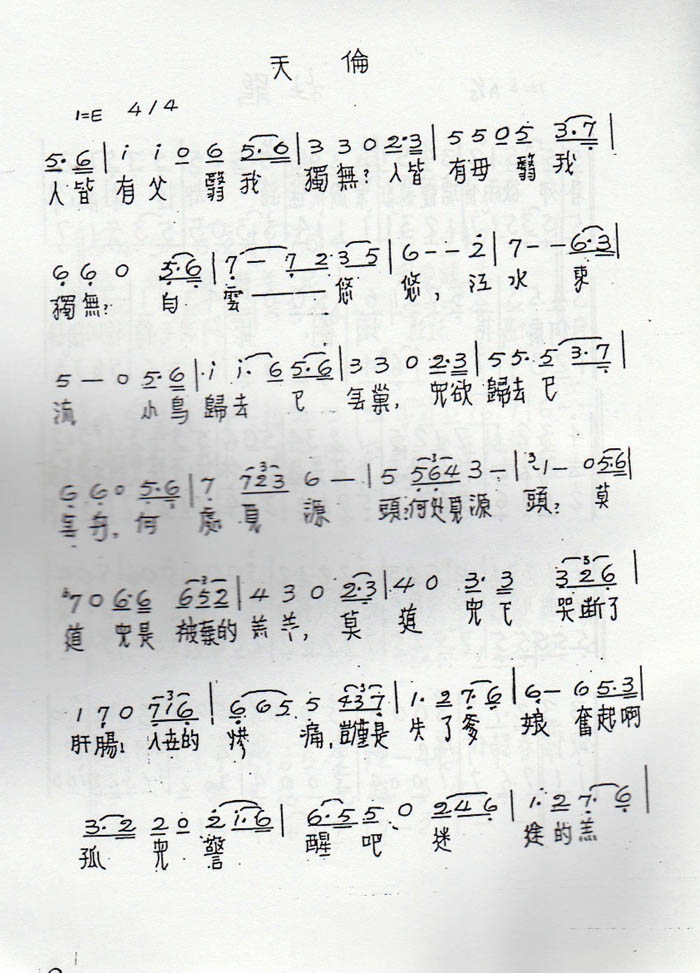 天 倫
1=E 4/4
5·6 | i i 0 6 5·6 | 3 3 0 2·3 | 5 5 0 5 3·7 |
人皆 有 父 翳 我 獨 無? 人皆 有 母 翳 我
6 6 0 5·6 | 7 - 7 2·3 5 | 6 - - 2 | 7 - - 6·3 |
獨 無? 白 雲 悠 悠, 江 水 東
5 - 0 5·6 | i i· 6 5·6 | 3 3 0 2·3 | 5 5· 5 3·7 |
流 小鳥 歸 去 已 巢, 兒欲 歸 去 已
6 6 0 5·6 | 7 723 6 - | 5 564 3 - | 3 1 - 0 5·6 |
舟, 何 處 覓 源 頭? 何處覓 源 頭? 莫
7 0 6·6 652 | 4 3 0 2·3 | 4 0 3· 3 326 |
道 兒是 被棄的 羔 羊, 莫 道 兒 已 哭斷了
1 7 0 716 | 6 6 5 5 437 | 1· 2 7·6 | 6 - 6 5·3 |
肝 腸! 人世的 慘 痛, 豈僅是 失 了 爹 娘 奮 起啊
3·2 2 0 2 1·6 | 6·5 5 0 2 4 6 | 1· 2 7· 6 |
孤 兒 警 醒 吧 迷 途 的 羔